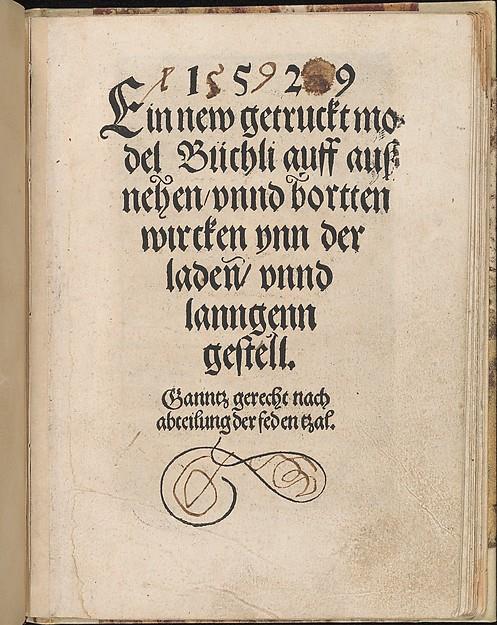 1 5 2 9
Ein new getruckt mo-
del Büchli auff auß-
nehen/vnnd bortten
wircken ynn der
laden̄/ vnnd
lanngenn
gestell.
Ganntz gerecht nach
abteilung der feden tzal.